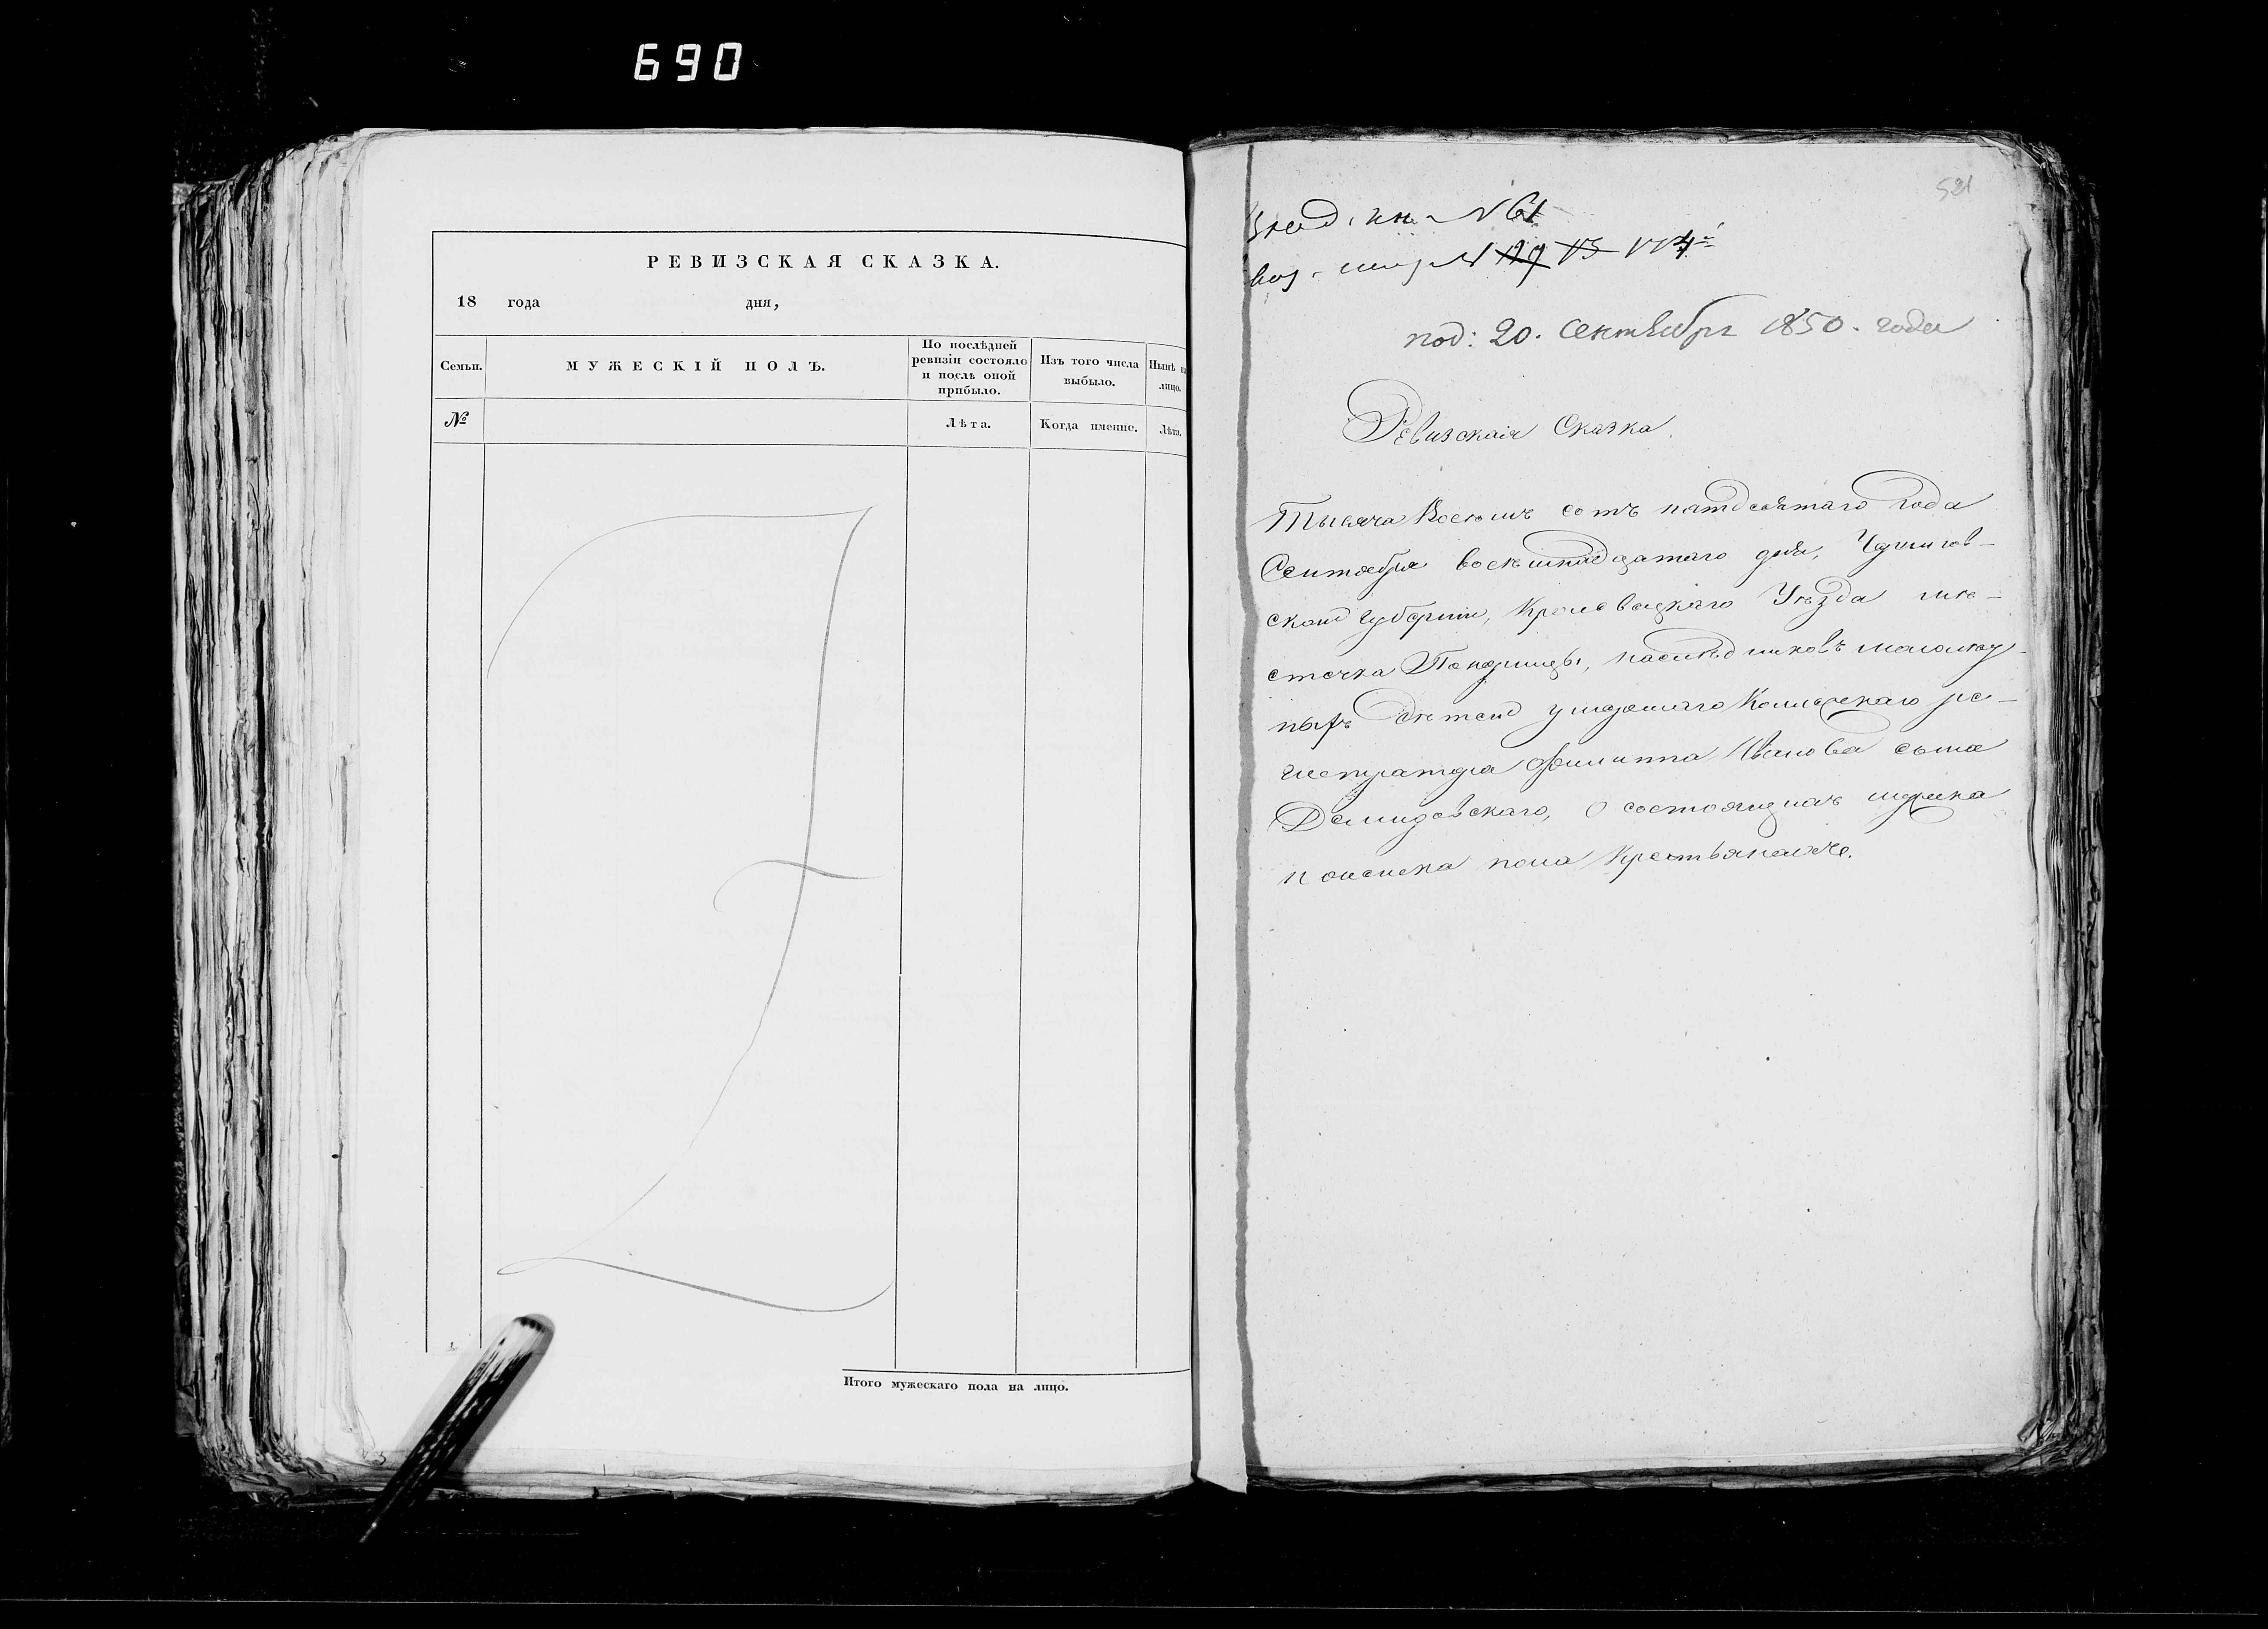 690
РЕВИЗСКАЯ СКАЗКА.
18 года дня,
Семьи.
МУЖЕСКІЙ ПОЛЪ.
По послѣдней
ревизіи состояло
и послѣ оной
прибыло.
Изъ того числа
выбыло.
Нынѣ на
лицо.
№
Лѣта.
Когда именно.
Лѣта.
Итого мужескаго пола на лицо.
521
№ 61
№ 129
под: 20. Сентября 1850. года
Ревизская Сказка.
Тысяча Восемь сотъ пятдесятаго Года
Сентября восемнадцатаго дня, Чернигов-
ской Губерніи, Кролевецкаго Уѣзда мѣ-
стечка Понурницы, наслѣдниковъ малолѣт-
ныхъ дѣтей умершаго Коллежскаго ре-
гистратора Филиппа Иванова сына
Демидовскаго, О состоящихъ мужеска
и женска пола крестьянахъ.